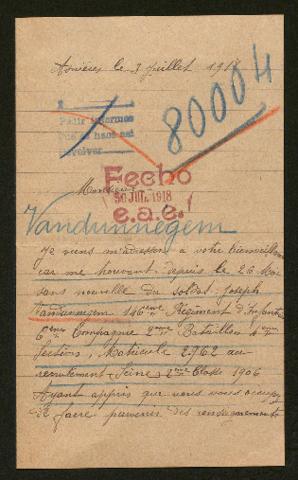 Asnières le 3 juillet 1918
80004
Pedir informes
Que se hace así
Devolver
Monsieur
Fecho
30 JUL. 1918
e.a.e.
Vandunnegem
Je viens m'adresser à votre bienveillance
car me trouvant depuis le 26 Mai
sans nouvelle du soldat Joseph
Vandunnegem 146ème Régiment d'Infanterie
6ème Compagnie 2ème Bataillon 4ème
Section, Matricule 2962 au
recrutement Seine 2ème Classe 1906
Ayant appris que vous vous occupez
de faire parvenir des renseignements